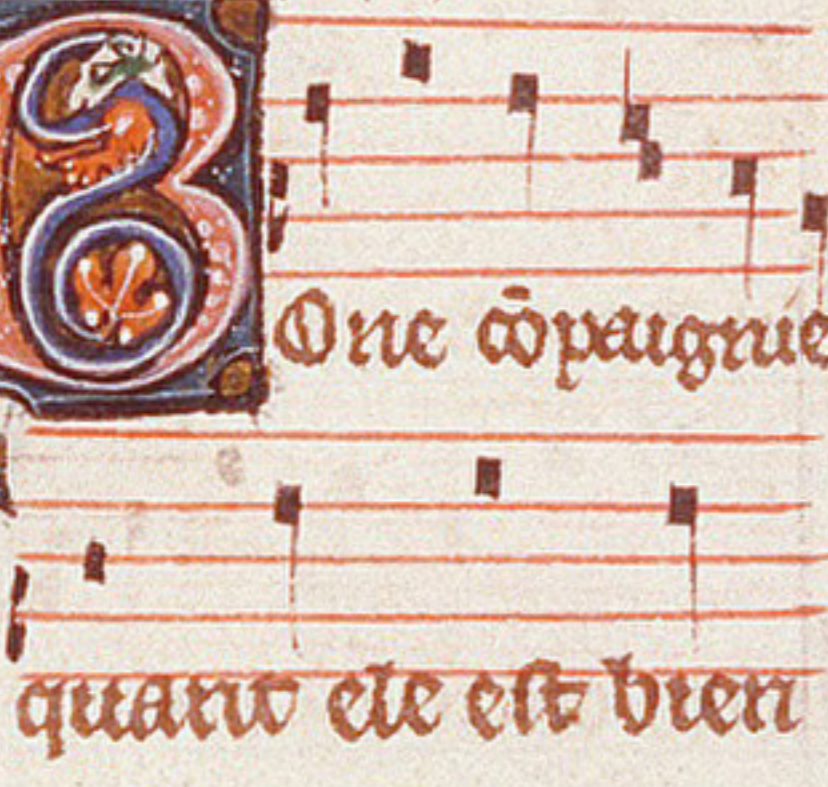 BOne cōpaignie
quant ele est bien